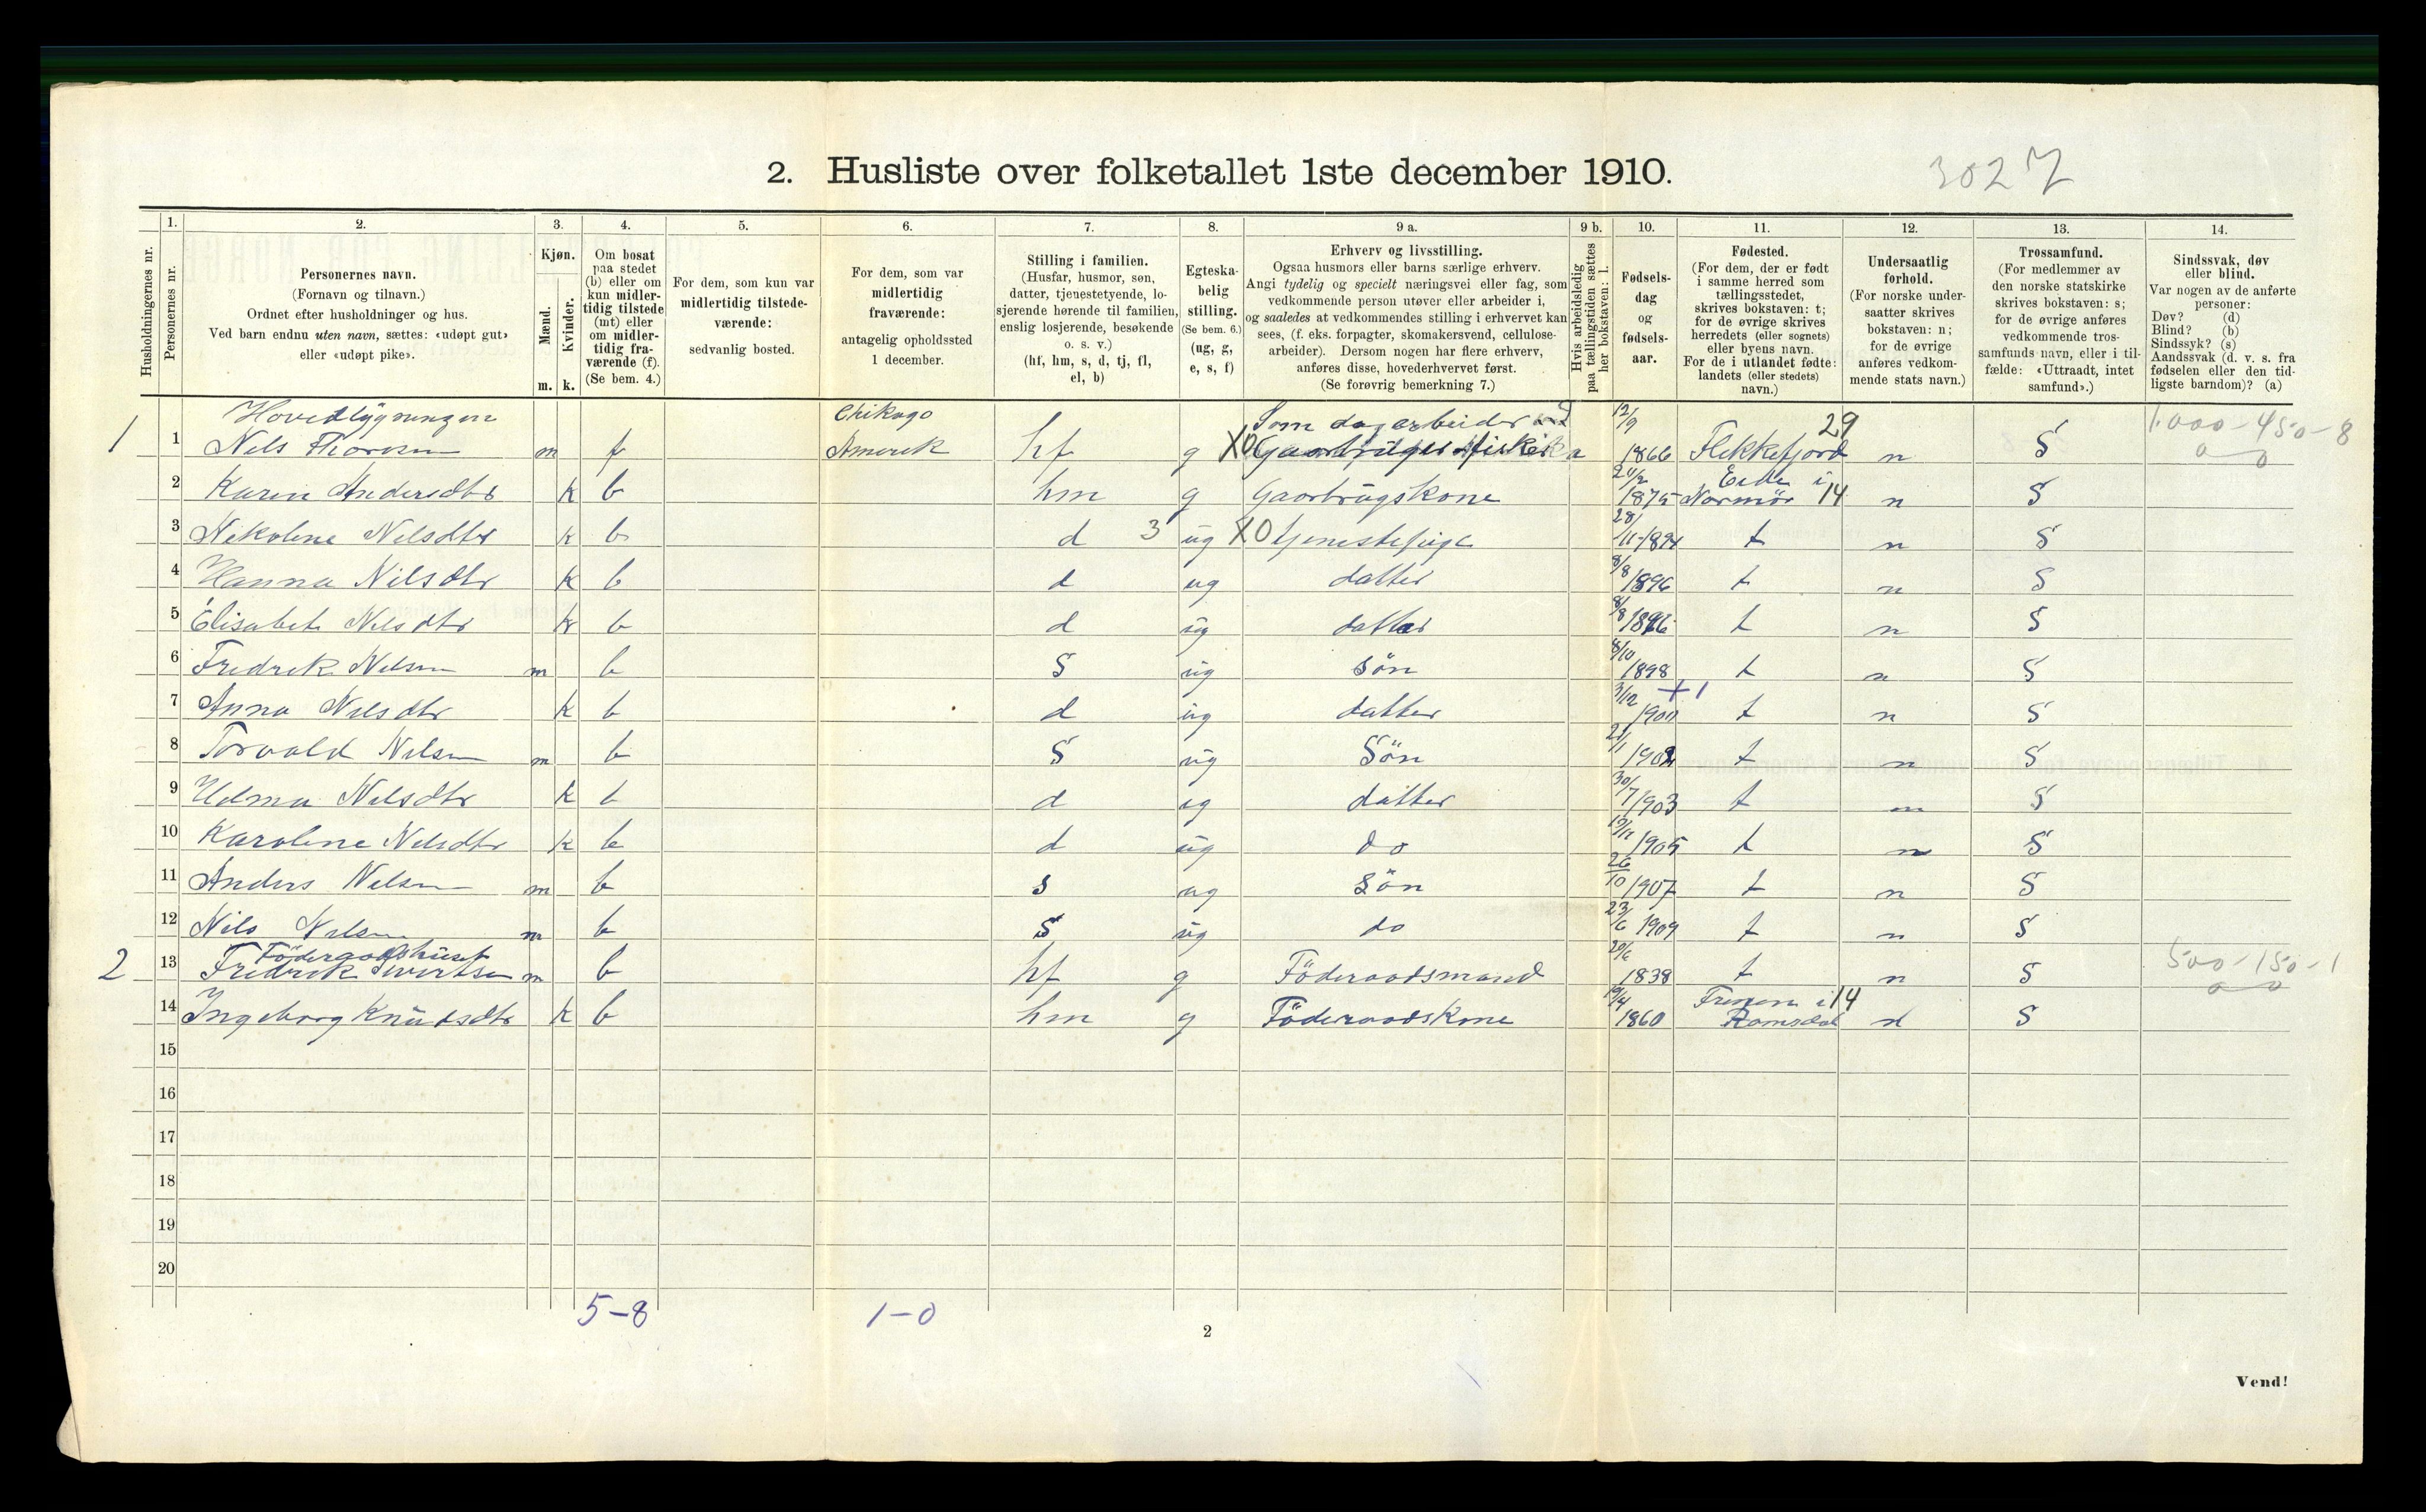 2. Husliste over folketallet 1ste december 1910.
3027
Husholdningernes nr.
1.
Personernes nr.
2.
Personernes navn.
(Fornavn og tilnavn.)
Ordnet efter husholdninger og hus.
Ved barn endnu uten navn, sættes: «udøpt gut»
eller «udøpt pike».
3.
Kjøn.
Mænd.
Kvinder.
m. k.
4.
Om bosat
paa stedet
(b) eller om
kun midler-
tidig tilstede
(mt) eller
om midler-
tidig fra-
værende (f).
(Se bem. 4.)
5.
For dem, som kun var
midlertidig tilstede-
værende:
sedvanlig bosted.
6.
For dem, som var
midlertidig
fraværende:
antagelig opholdssted
1 december.
7.
Stilling i familien.
(Husfar, husmor, søn,
datter, tjenestetyende, lo-
sjerende hørende til familien,
enslig losjerende, besøkende
o. s. v.)
(hf, hm, s, d, tj, fl,
el, b)
8.
Egteska-
belig
stilling.
(Se bem. 6.)
(ug, g,
e, s, f)
9 a.
Erhverv og livsstilling.
Ogsaa husmors eller barns særlige erhverv.
Angi tydelig og specielt næringsvei eller fag, som
vedkommende person utøver eller arbeider i,
og saaledes at vedkommendes stilling i erhvervet kan
sees, (f. eks. forpagter, skomakersvend, cellulose-
arbeider). Dersom nogen har flere erhverv,
anføres disse, hovederhvervet først.
(Se forøvrig bemerkning 7.)
9 b.
Hvis arbeidsledig
paa tællingstiden sættes
her bokstaven: l.
10.
Fødsels-
dag
og
fødsels-
aar.
11.
Fødested.
(For dem, der er født
i samme herred som
tællingsstedet,
skrives bokstaven: t;
for de øvrige skrives
herredets (eller sognets)
eller byens navn.
For de i utlandet fødte:
landets (eller stedets)
navn.)
12.
Undersaatlig
forhold.
(For norske under-
saatter skrives
bokstaven: n;
for de øvrige
anføres vedkom-
mende stats navn.)
13.
Trossamfund.
(For medlemmer av
den norske statskirke
skrives bokstaven: s;
for de øvrige anføres
vedkommende tros-
samfunds navn, eller i til-
fælde: «Uttraadt, intet
samfund».)
14.
Sindssvak, døv
eller blind.
Var nogen av de anførte
personer:
Døv? (d)
Blind? (b)
Sindssyk? (s)
Aandssvak (d. v. s. fra
fødselen eller den tid-
ligste barndom)? (a)
Hovedbygningen Chikago Som dagarbeider 12/9 29 1000-450-8
1 1 Nils Thorsen m f Amerik hf g X0 Gaardbruger Fisker a 1866 Flekkefjord n S 0 0
24/2 Eide i
2 Karen Andersdtr k b hm g Gaarbrugskone 1875 Normör 14 n S
3 Nikoline Nilsdtr k b d 3 ug X0 tjenestepige 28/11-1894 t n S
4 Hanna Nilsdtr k b d ug datter 8/8 1896 t n S
5 Elisabet Nilsdtr k b d ug datter 8/8 1896 t n S
6 Fredrik Nilsen m b S ug sön 8/10 1898 t n S
7 Anna Nilsdtr k b d ug datter 3/12 1900 +1 t n S
8 Torvald Nilsen m b S ug Sön 21/1 1902 t n S
9 Helma Nilsdtr k b d ug datter 30/7 1903 t n S
10 Karoline Nilsdtr k b d ug do 1905 t n S
11 Anders Nilsen m b s ug Sön 26/10 1907 t n S
12 Nils Nilsen m b S ug do 23/6 1909 t n S
Föderaadshuset 500-150-1
2 13 Fredrik Sivertsen m b hf g Föderaadsmand 20/6 1838 t n S 0 0
19/4 Frenen i 14
14 Ingeborg Knudsdtr k b hm g Föderaadskone 1860 Romsdal n S
15
16
17
18
19
20
5-8 1-0
2
Vend!